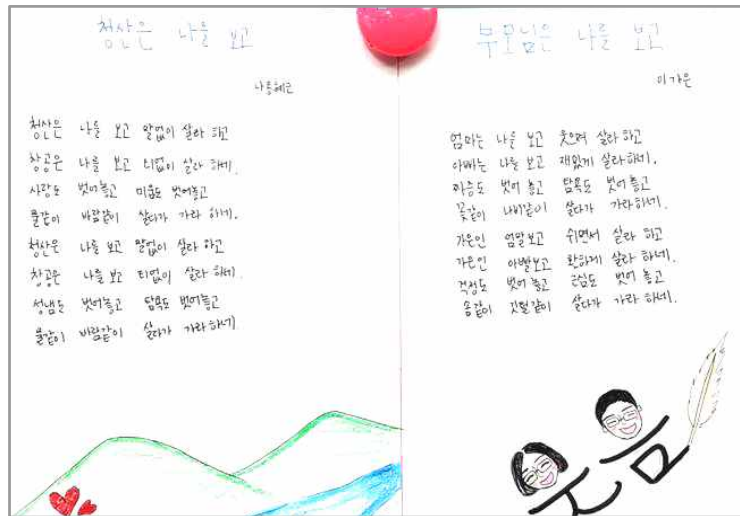 청산은 나를 보고
나옹혜근
청산은 나를 보고 말없이 살라 하고
창공은 나를 보고 티없이 살라 하네.
사랑도 벗어놓고 미움도 벗어놓고
물같이 바람같이 살다가 가라 하네.
청산은 나를 보고 말없이 살라 하고
창공은 나를 보고 티없이 살라 하네.
성냄도 벗어놓고 탐욕도 벗어놓고
물같이 바람같이 살다가 가라 하네.
부모님은 나를 보고
이가은
엄마는 나를 보고 웃으며 살라 하고
아빠는 나를 보고 재밌게 살라하네.
짜증도 벗어 놓고 탐욕도 벗어 놓고
꽃같이 나비같이 살다가 가라하네.
가은인 엄말보고 쉬면서 살라 하고
가은인 아빨보고 환하게 살라 하네.
걱정도 벗어 놓고 근심도 벗어 놓고
솜같이 깃털같이 살다가 가라 하네.